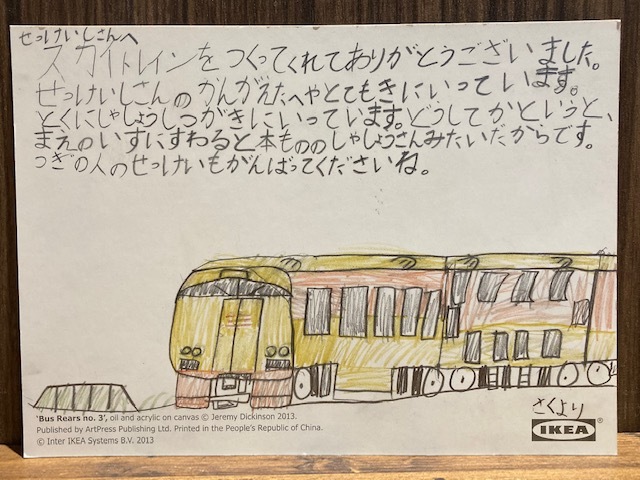 せっけいしさんへ
スカイトレインをつくってくれてありがとうございました。
せっけいしさんのかんがえたへやとてもきにいっています。
とくにしゃしょうしつがきにいっています。どうしてかというと、
まえのいすにすわると本もののしゃしょうさんみたいだからです。
つぎの人のせっけいもがんばってくださいね。
さくより
'Bus Rears no. 3', oil and acrylic on canvas © Jeremy Dickinson 2013.
Published by ArtPress Publishing Ltd. Printed in the People's Republic of China.
© Inter IKEA Systems B.V. 2013
IKEA®